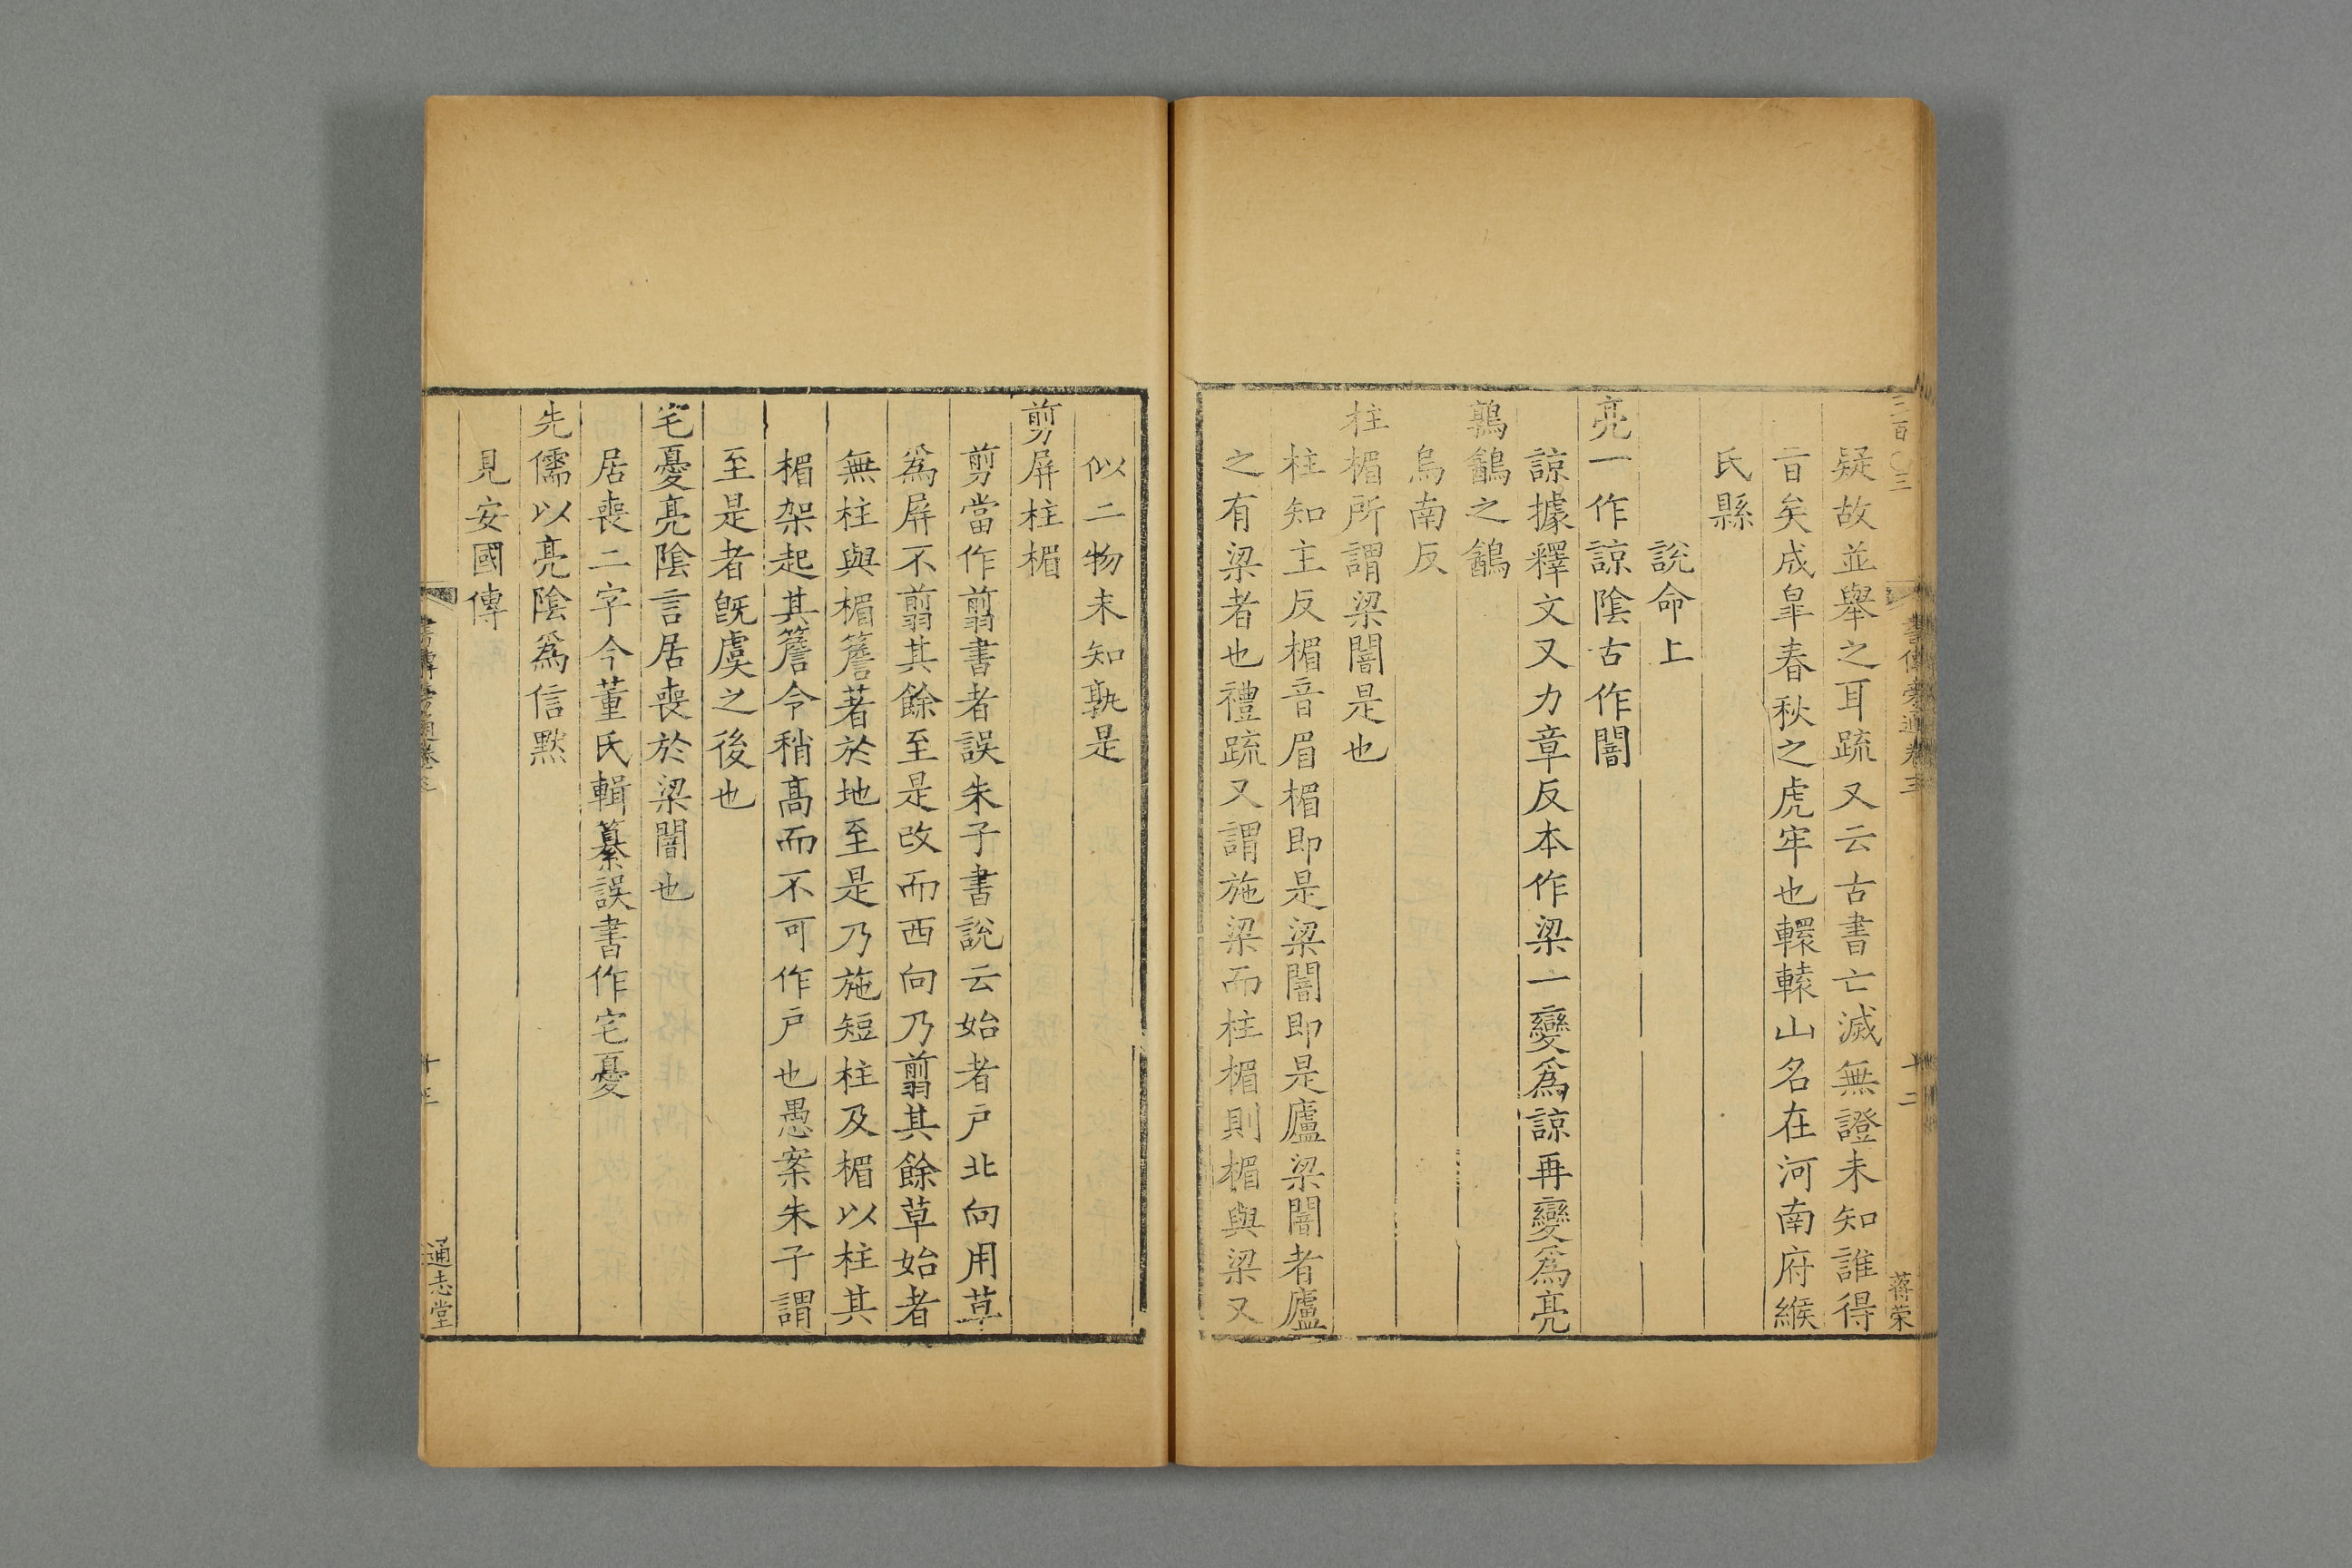 疑故並舉之耳疏又云古書亡滅無證未知誰得
旨矣成皐春秋之虎牢也轘轅山名在河南府緱
氏縣
說命上
亮一作諒陰古作闇
諒據釋文又力章反本作梁一變爲諒再變爲亮
鶉鷂之鷂
烏南反
柱楣所謂梁闇是也
柱知主反楣音眉楣即是梁闇即是廬梁闇者廬
之有梁者也禮疏又謂施梁而柱楣則楣與梁又
蒋荣
似二物未知孰是
剪屏柱楣
剪當作翦書者誤朱子書說云始者戶北向用草
爲屏不翦其餘至是改而西向乃翦其餘草始者
無柱與楣簷著於地至是乃施短柱及楣以柱其
楣架起其簷令稍高而不可作戶也愚案朱子謂
至是者旣虞之後也
宅憂亮陰言居喪於梁闇也
居喪二字今董氏輯纂誤書作宅憂
先儒以亮陰爲信默
見安國傳
通志堂